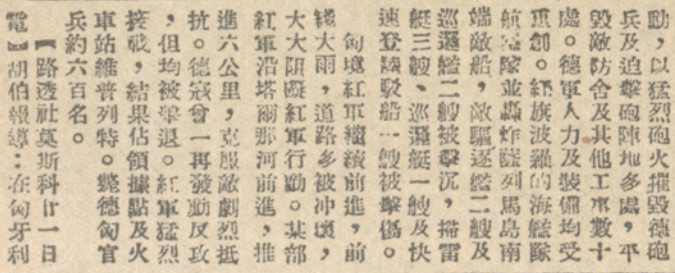 動，以猛烈砲火摧毀德砲
兵及迫擊砲陣地多處，平
毀敵防舍及其他工事數十
處。德軍人力及裝備均受
重創。紅旗波羅的海艦隊
航空隊並轟炸薩列馬島南
端敵船，敵驅逐艦二艘及
巡邏艦二艘被擊沉，掃雷
艇三艘、巡邏艇一艘及快
速登陸駁船一艘被擊傷。
匈境紅軍繼續前進，前
綫大雨，道路多被冲壞，
大大阻礙紅軍行動。某部
紅軍沿塔爾那河前進，推
進六公里，克服敵劇烈抵
抗。德寇曾一再發動反攻
，但均被擊退。紅軍猛烈
接戰，結果佔領據點及火
車站維普列特。斃德匈官
兵約六百名。
【路透社莫斯科廿一日
電】胡伯報導：在匈牙利